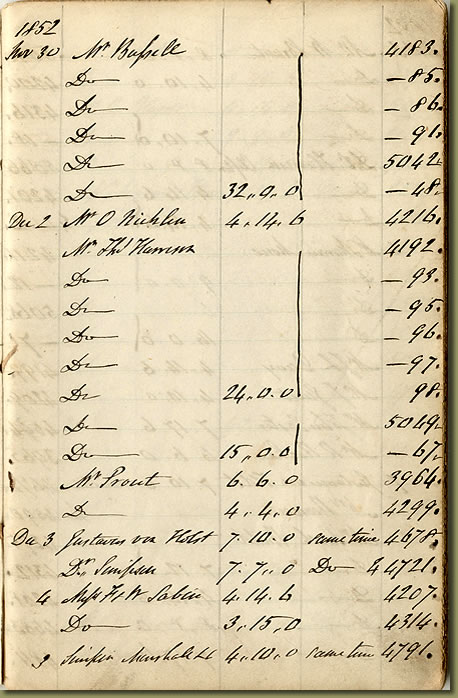 1852
Nov 30 Mr Bussell 4183.
Do — 85.
Do — 86.
Do — 91.
Do 5042.
Do 32,,0,,0 — 48.
Dec 2 Mr O Nicklin 4,,14,,6 4216.
Mr Thos Harrison 4192.
Do — 93.
Do — 95.
Do — 96.
Do — 97.
Do 24.0.0 98.
Do 5049.
Do 15,,0.0 — 67.
Mr Prout 6.6.0 3964.
Do 4.4.0 4299.
Dec 3 Gustavus von Holst 7.10.0 same time 4678.
Dr. Simpson 7.7.,0 Do & 4721.
4 W Sabin 4.14.6 4207.
Do 3,,15,,0 4314.
3 Simpkin Marshall 4,,10,,0 same time 4791.